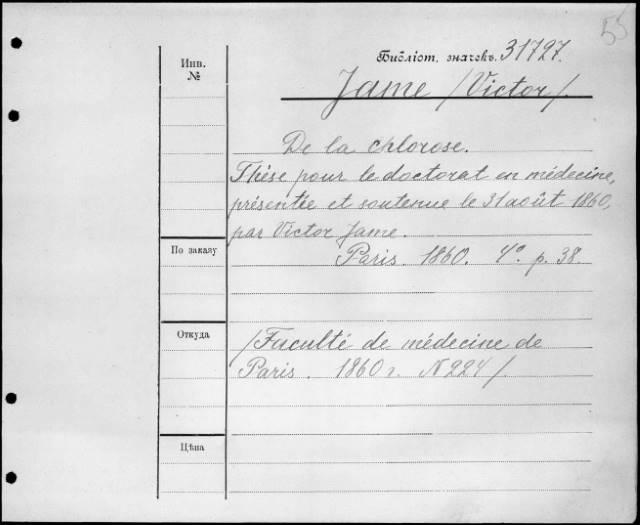 55
Библіот. значекъ. 31727.
Инв.
№
Jame /Victor/.
De la chlorose.
Thèse pour le doctorat en médecine,
présentée et soutenue le 31 août 1860,
par Victor Jame.
По заказу
Paris. 1860. 4º. p. 38.
Откуда
/Faculté de médecine de
Paris. 1860 г. N 224/.
Цѣна